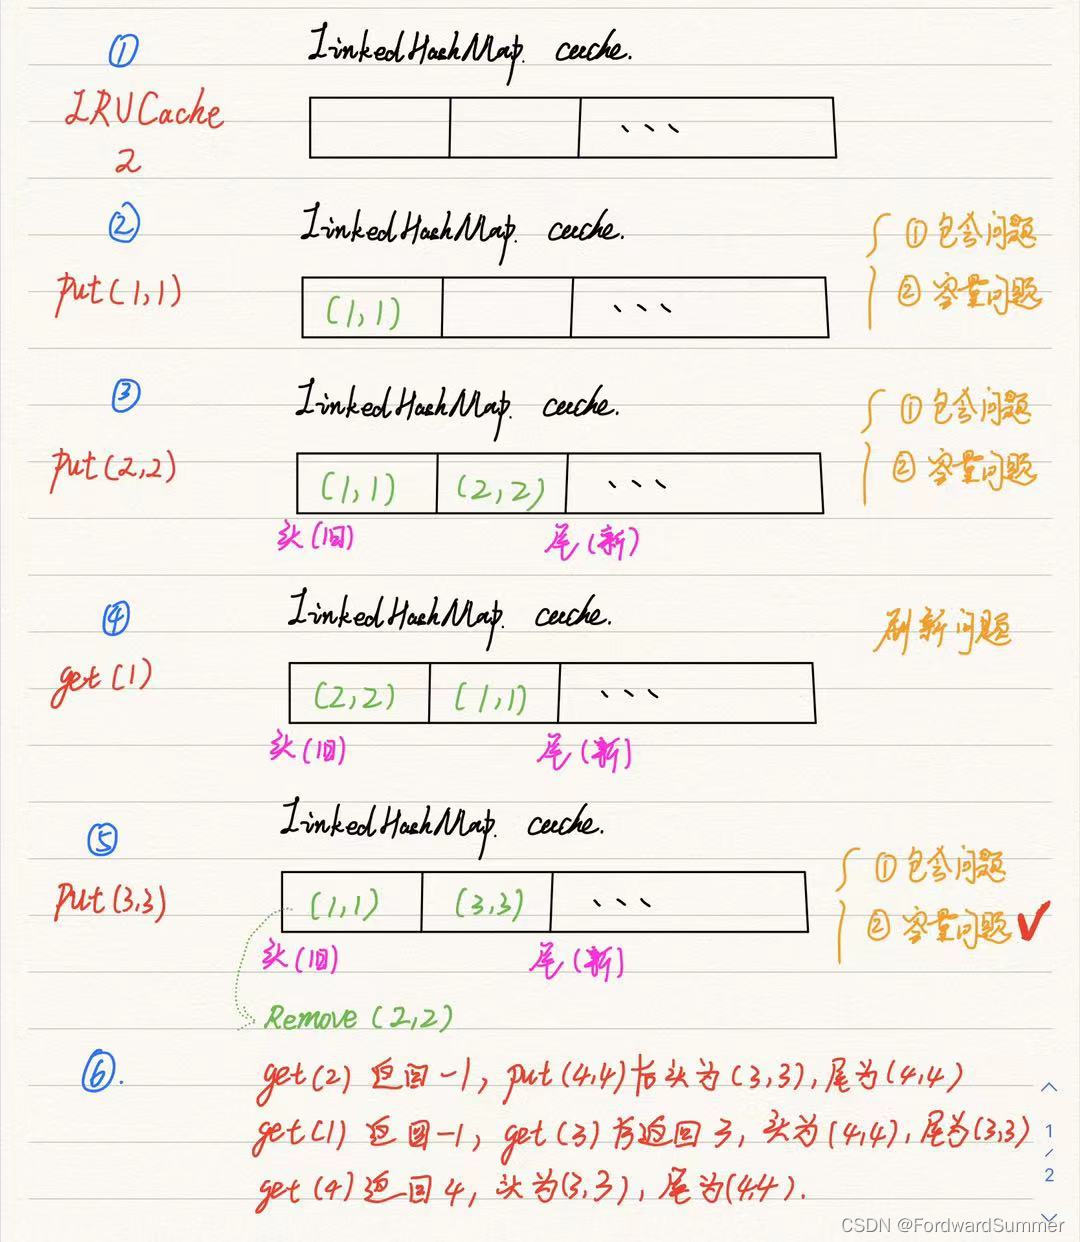 ①
LinkedHashMap. cache.
LRUCache
2
...
②
LinkedHashMap. cache.
①包含问题
put(1,1)
②容量问题
(1,1)
...
③
LinkedHashMap. cache.
①包含问题
put(2,2)
②容量问题
(1,1) (2,2) ...
头(旧) 尾(新)
④
LinkedHashMap. cache.
刷新问题
get(1)
(2,2) (1,1) ...
头(旧) 尾(新)
⑤
LinkedHashMap. cache.
①包含问题
put(3,3)
(1,1) (3,3) ...
②容量问题✓
头(旧) 尾(新)
Remove (2,2)
⑥.
get(2) 返回-1, put(4,4)后头为(3,3),尾为(4,4)
get(1) 返回-1, get(3)后返回3,头为(4,4),尾为(3,3)
get(4)返回4,头为(3,3),尾为(4,4).
1
/
2
CSDN @FordwardSummer